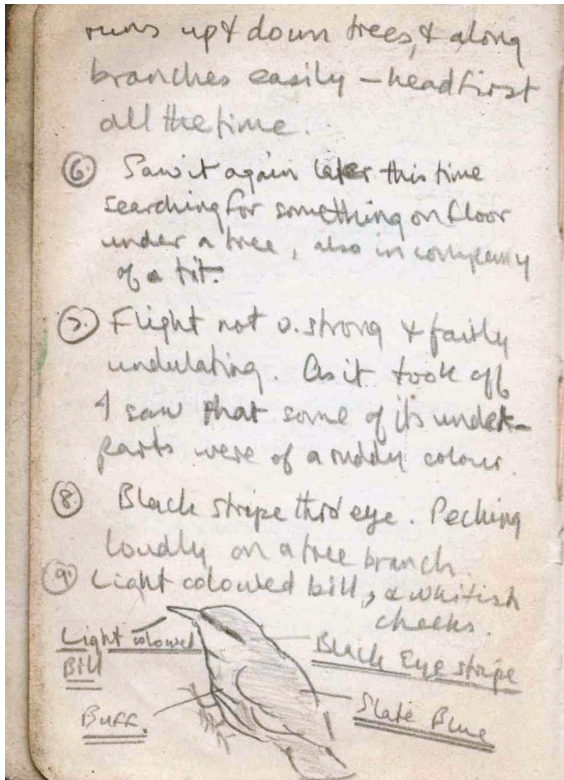 runs up & down trees, & along
branches easily – headfirst
all the time.
⑥ Saw it again later this time
searching for something on floor
under a tree, also in company
of a tit.
⑦ Flight not v. strong & fairly
undulating. As it took off
I saw that some of its under-
parts were of a ruddy colour.
⑧ Black stripe thro' eye. Pecking
loudly on a tree branch.
⑨ Light coloured bill, & whitish
cheeks.
Light coloured
Bill
Black Eye stripe
Buff.
Slate Blue